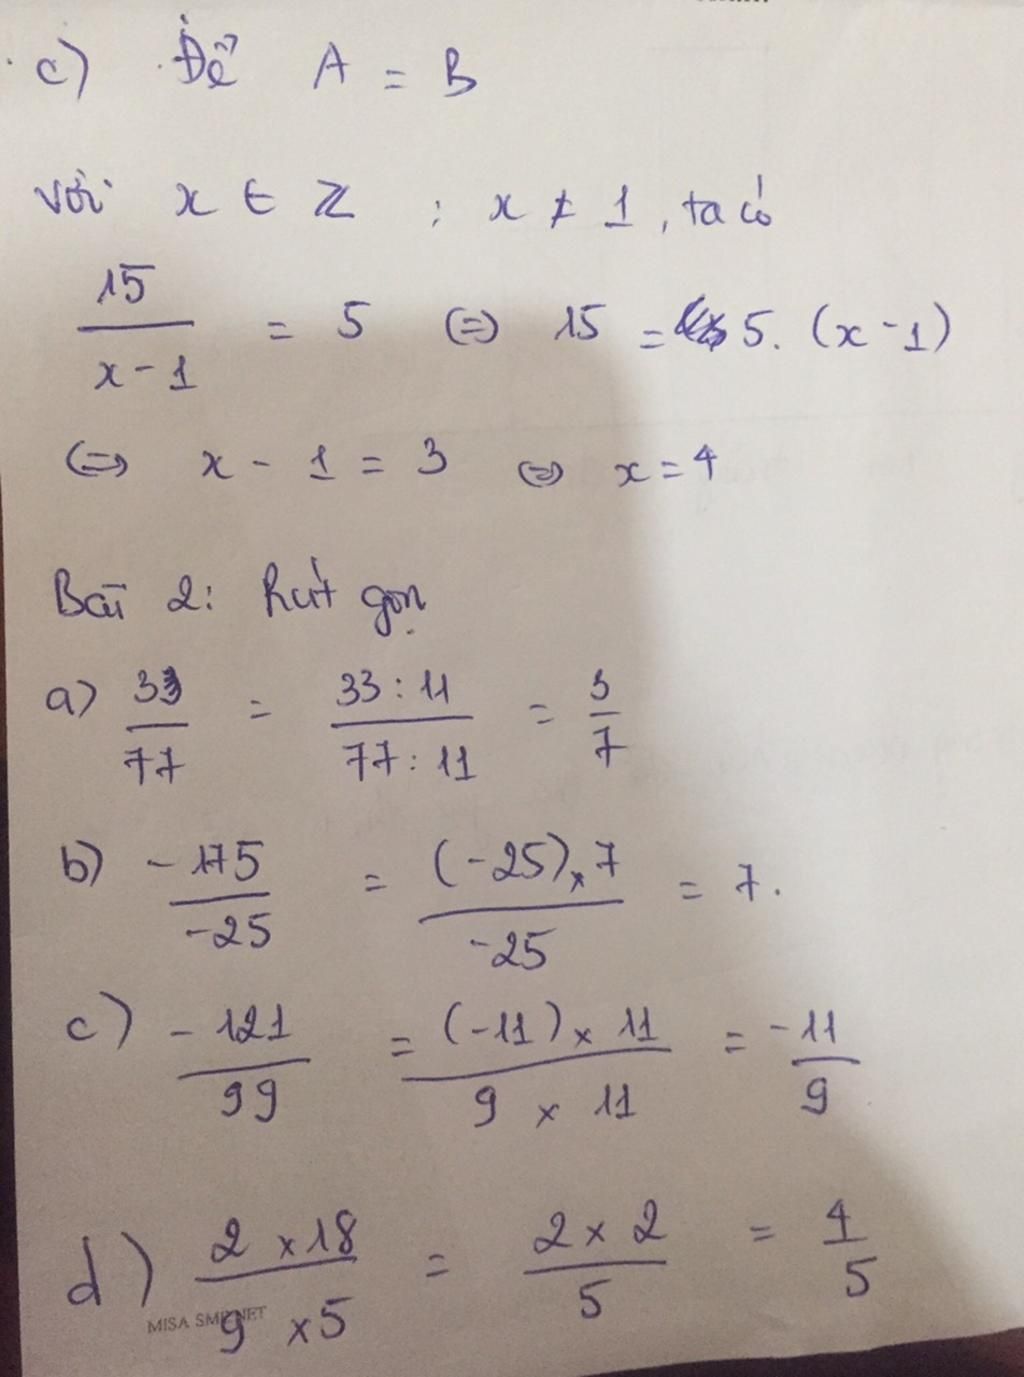 c) Để A = B
với x ∈ Z ; x ≠ 1, ta có
15/(x-1) = 5 (=) 15 = 5. (x-1)
(=) x - 1 = 3 (=) x = 4
Bài 2: Rút gọn
a) 33/77 = (33:11)/(77:11) = 3/7
b) -175/-25 = ((-25)x7)/-25 = 7.
c) -121/99 = ((-11) x 11)/(9 x 11) = -11/9
d) (2 x 18)/(9 x 5) = (2 x 2)/5 = 4/5
MISA SME.NET